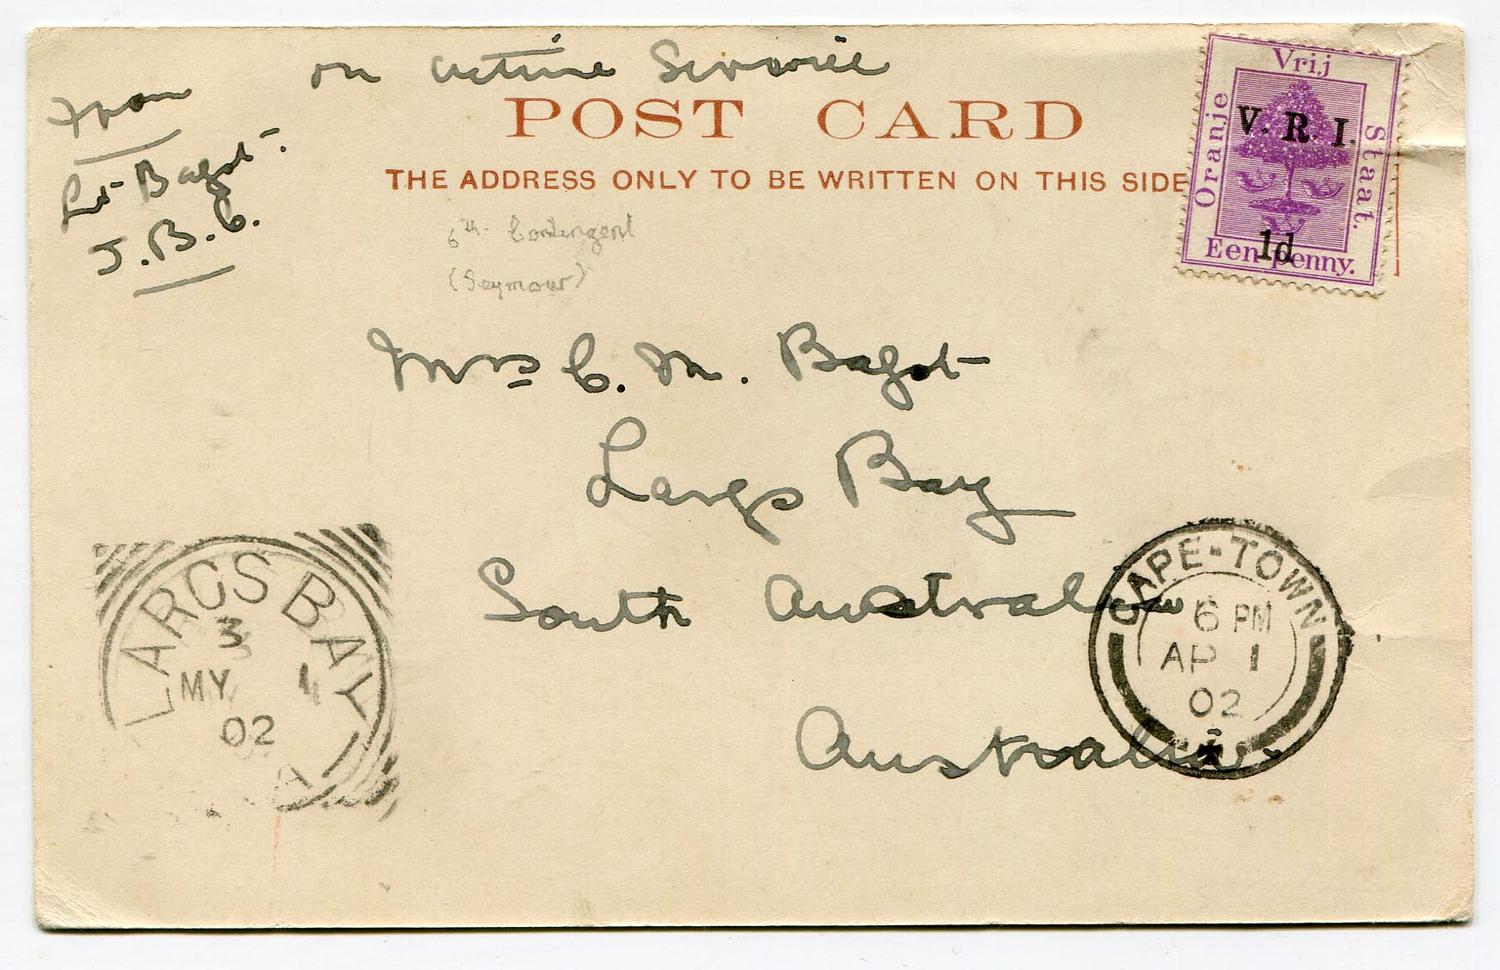 on active Service
From
Lt Bagot.
J.B.C.
POST CARD
THE ADDRESS ONLY TO BE WRITTEN ON THIS SIDE
6th Contingent
(Seymour)
Vrij
Oranje
Staat.
V. R. I.
1d
Een penny.
Mrs C. M. Bagot
Largs Bay
South Australia
Australia.
LARGS BAY
3
MY 1
02
A
CAPE-TOWN
6 PM
AP 1
02